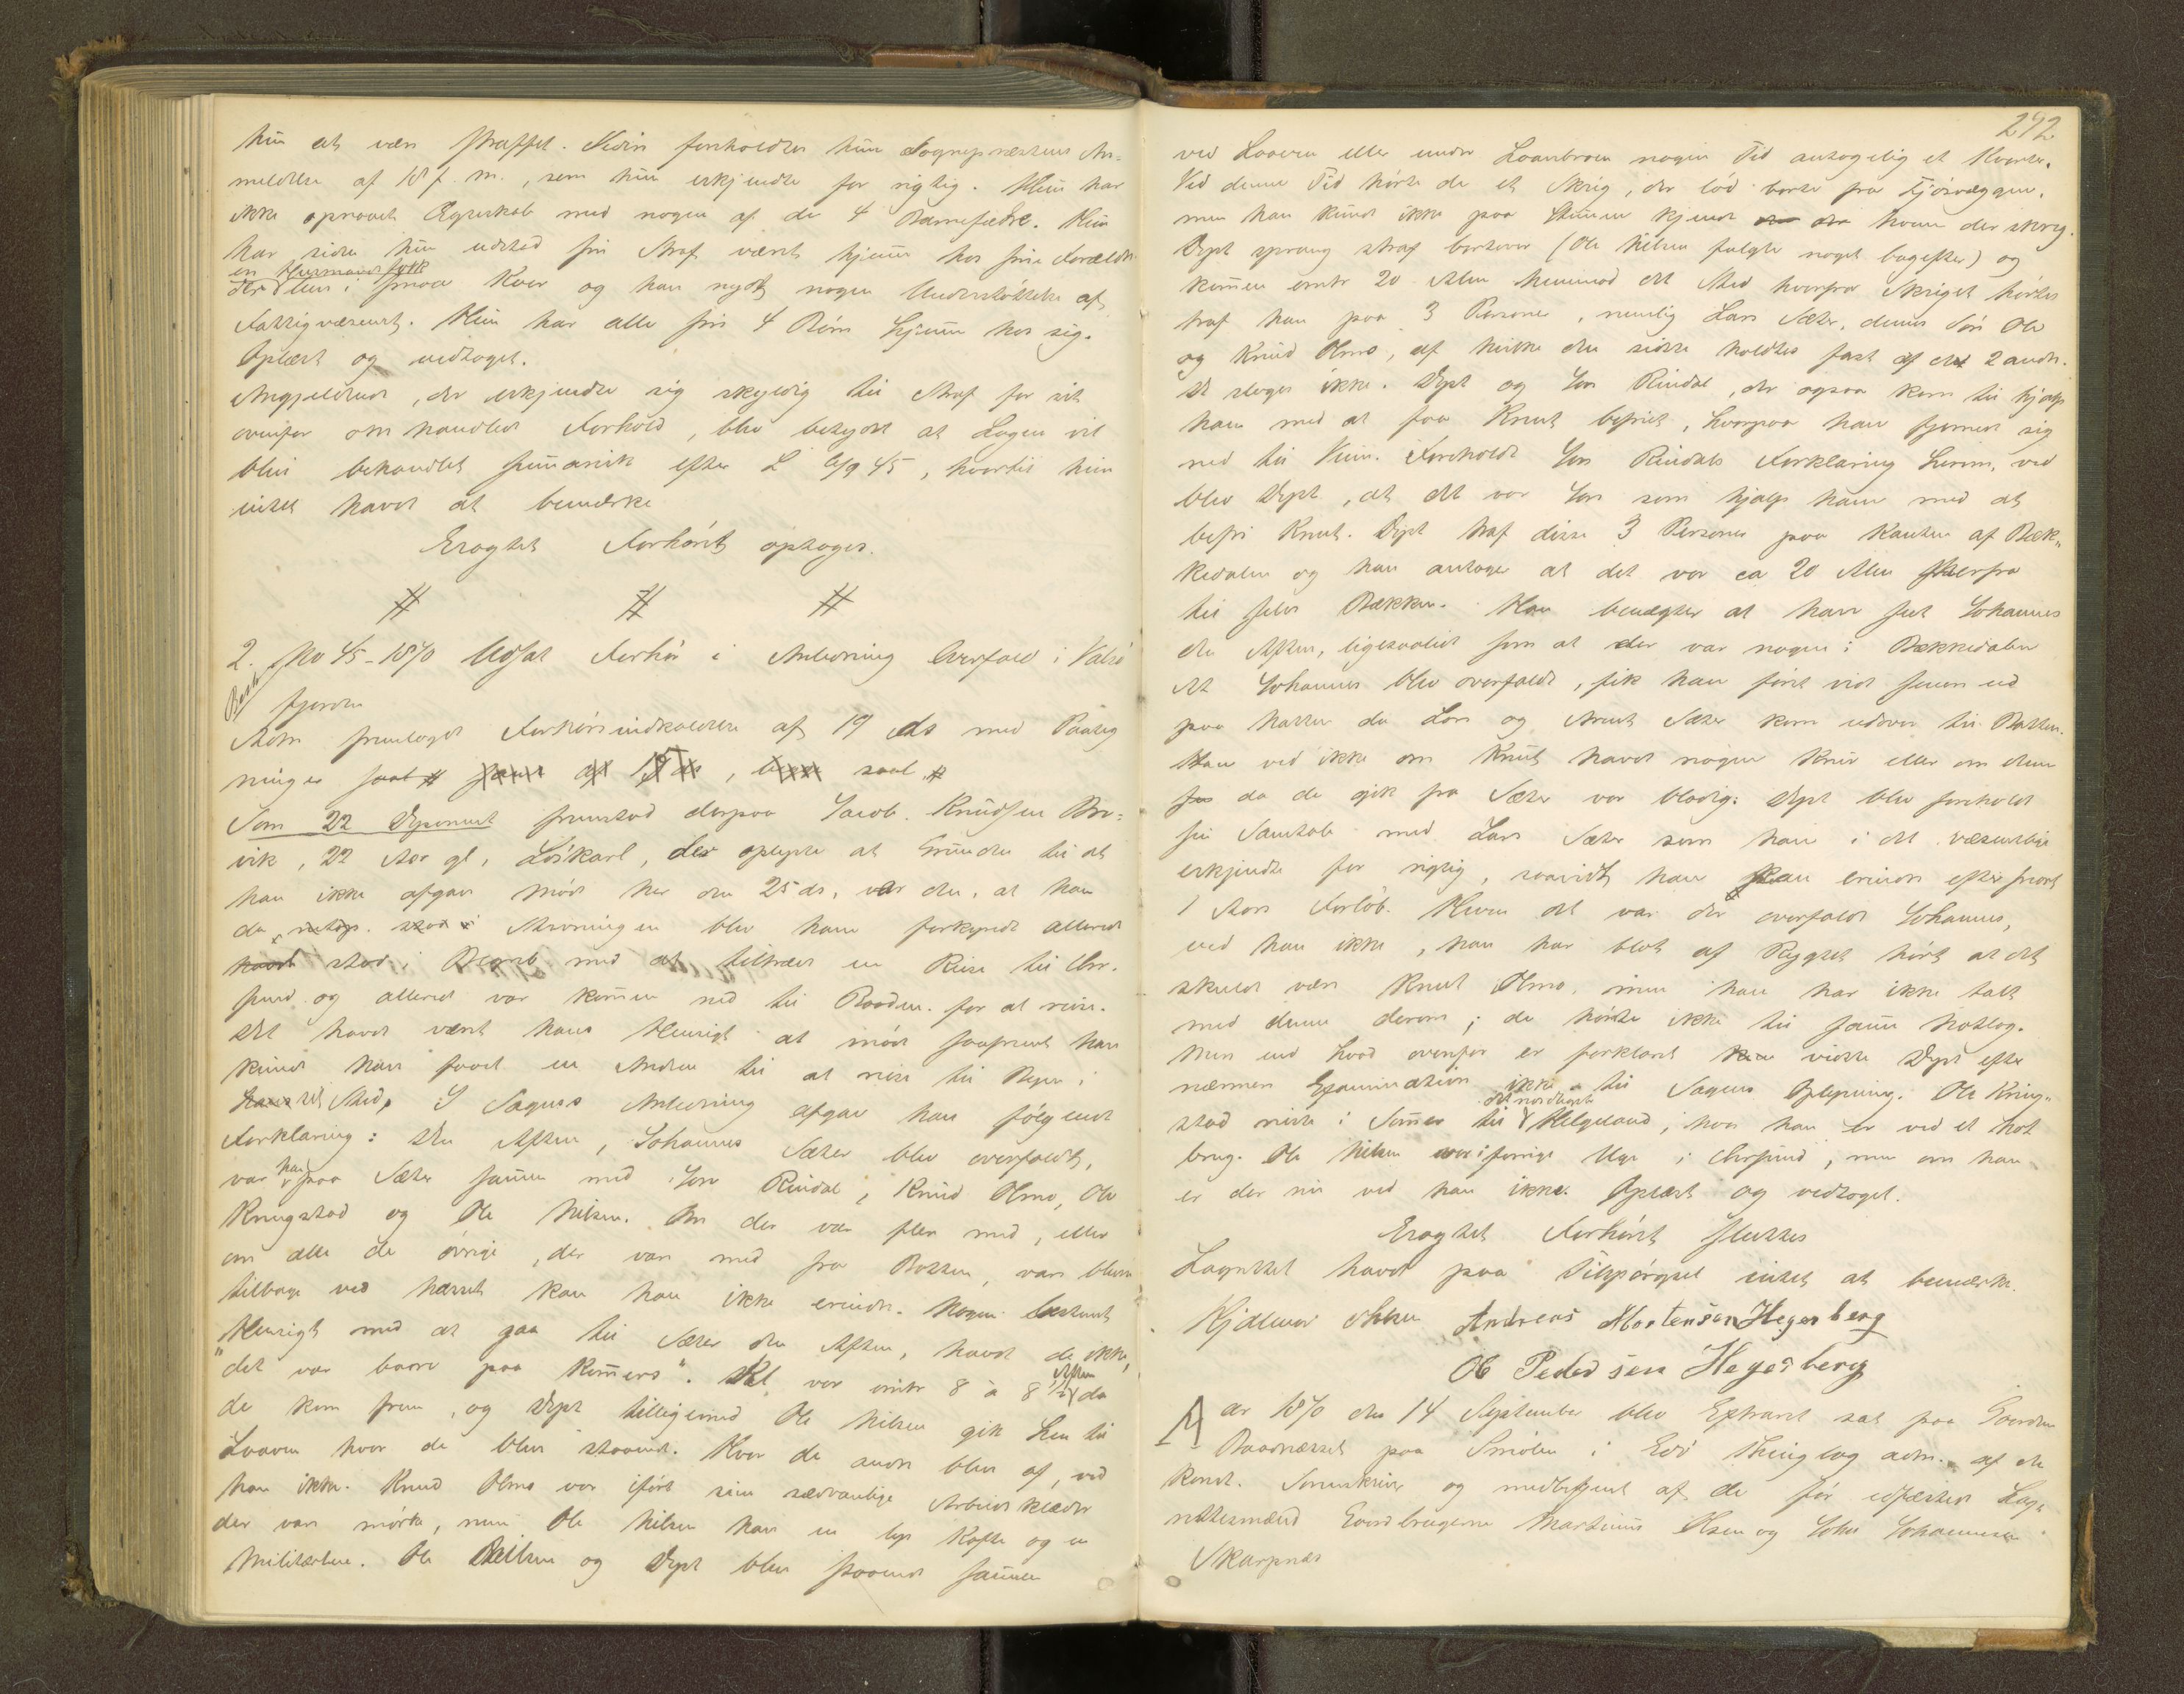 hun at være straffet. Viden foreholdtes hun Sognepræstens An-
meldelse af 18 f. m., som hun erkjendte for rigtig. Hun har
ikke opnaaet Ægteskab med nogen af de 4 Barnefædre. Hun
har siden hun udstod sin Straf været hjemme hos sine Forældre
en Husmandsfolk
der leve i smaa Kaar og har nydt nogen Understøttelse af
Fattigvæsenet. Hun har alle sine 4 Børn hjemme hos sig.
Oplæst og vedtaget.
Angjeldende, der erkjendte sig skyldig til Straf for sit
ovenfor omhandlede Forhold, blev betydet at Sagen vil
blive behandlet summarisk efter L 6/9 45, hvortil hun
intet havde at bemærke
Eragtet Forhøret optages.
# # #
2. No 45-1870 Udsat Forhør i Anledning Overfald i Valsø
fjorden
Retten fremlagde Forhørsindkaldelse af 19 ds med Paateg
ninger saal
Som 22 Deponent fremstod derpaa Jacob Knudsen Bro-
vik, 22 Aar gl, Løskarl, der oplyste at Grunden til at
han ikke afgav møde her den 25 ds, var den, at han
da Stevningen blev ham forkyndt allerede
stod i Begreb med at tiltræde en Reise til Chr.
sund og allerede var kommen ned til Baaden for at reise.
Det havde været hans Hensigt at møde saafremt han
kunde have faaet en Anden til at reise til Byen i
sit Sted. I Sagens Anledning afgav han følgende
Forklaring: Den Aften, Johannes Sæter blev overfaldt,
var han paa Sæter sammen med Jon Rindal, Knud Olmo, Ole
Kringstad og Ole Nilsen. Om der var flere med, eller
om alle de øvrige, der var med fra Baatten, vare blevne
tilbage ved Næsset kan han ikke erindre. Nogen bestemt
Hensigt med at gaa til Sæter den Aften, havde de ikke,
"det var bare paa Kommers". Kl var omtr 8 a 8 1/2 Aften da
de kom frem, og Dept tilligemed Ole Nilsen gik hen til
Laaven hvor de blev staaende. Hvor de andre blev af, ved
han ikke. Knud Olmo var iført sine sædvanlige Arbeidsklæder
der vare mørke, men Ole Nilsen har en lys Kofte og en
Militærhue. Ole Nilsen og Dept blev staaende sammen
292
ved Laaven eller under Laanbroen nogen Tid antagelig et Kvarter.
Ved denne Tid hørte de et Skrig, der lød borte fra Fjøsvæggen,
men han kunde ikke paa Stemmen kjende hvem der skreg.
Dept sprang straf bortover (Ole Nilsen fulgte noget bagefter) og
kommen omtr 20 Alen henimod det Sted hvorfra Skriget hørtes
traf han paa 3 Personer, nemlig Lars Sæter, dennes Søn Ole
og Knud Olmo, af hvilke den sidste holdtes fast af de 2 andre.
De sloges ikke. Dept og Jon Rindal, der ogsaa kom til hjalp
ham med at faa Knut befriet, hvorpaa han fjernede sig
ned til Veien. Foreholdt Jon Rindals Forklaring herom, ved
blev Dept, at det var Jon som hjalp ham med at
befri Knut. Dept traf disse 3 Personer paa Kanten af Bæk-
kedalen og han antager at det var ca 20 Alen herfra
til selve Bækken. Han benægter at have seet Johannes
den Aften, ligesaalidt som at der var nogen i Bækkedalen
At Johannes blev overfaldt, fik han først vide senere ud
paa Natten da Lars og Arnt Sæter kom udover til Baatten.
Han ved ikke om Knut havde nogen Kniv eller om denne
da de gik fra Sæter var blodig. Dept blev foreholdt
sin Samtale med Lars Sæter som han i det væsentlige
erkjendte for rigtig, saavidt han kan erindre efter snart
1 Aars Forløb. Hvem det var der overfaldt Johannes,
ved han ikke, han har blot af Rygtet hørt at det
skulde være Knut Olmo, men han har ikke talt
med denne derom; de hørte ikke til samme Notlag.
Mere end hvad ovenfor er forklaret vidste Dept efter
nærmere Examination ikke til Sagens Oplysning. Ole Kring-
det nordligste
stad reiste i Sommer til Helgeland, hvor han er ved et Not
brug. Ole Nilsen var i forrige Uge i Chrsund, men om han
er der nu ved han ikke. Oplæst og vedtaget.
Eragtet Forhøret sluttes
Lagrettet havde paa Tilspørgsel intet at bemærke.
Andreas Mortensen Hegerberg
Ole Pedersen Hegerberg
Aar 1870 den 14 September blev Extraret sat paa Gaarden
Baadnæsset paa Smølen i Edø Thinglag adm. af den
konst. Sorenskriver og medbetjent af de før edfæstede Lag-
rettesmænd Gaardbrugerne Martinus Olsen og John Johannesen
Skarpnæs